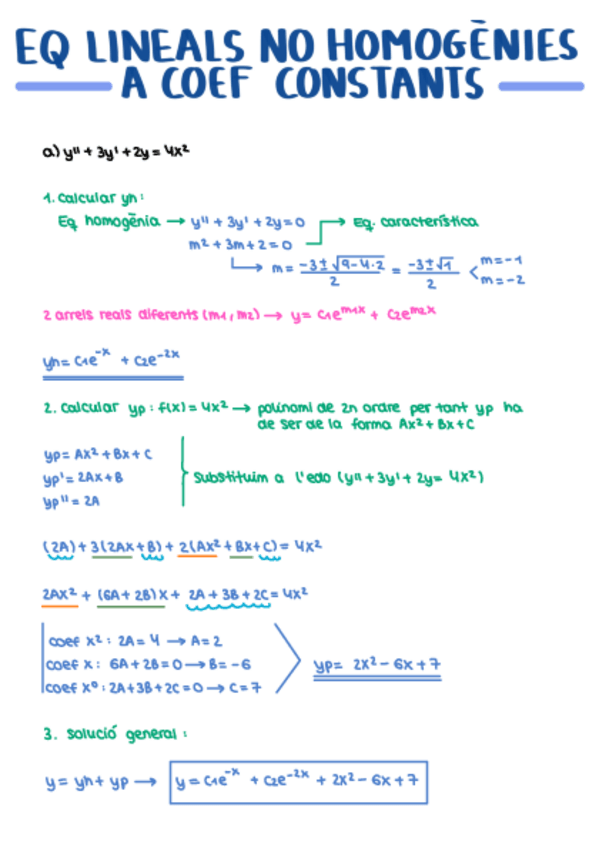 EQ LINEALS NO HOMOGÈNIES
A COEF CONSTANTS
a) y'' + 3y' + 2y = 4x²
1. Calcular yh:
Eq homogènia → y'' + 3y' + 2y = 0 → Eq. característica
m² + 3m + 2 = 0
m = (-3 ± √(9-4·2))/2 = (-3 ± √1)/2 < m = -1
m = -2
2 arrels reals diferents (m1, m2) → y = C1e^m1x + C2e^m2x
yh = C1e^-x + C2e^-2x
2. Calcular yp: f(x) = 4x² → polinomi de 2n ordre per tant yp ha
de ser de la forma Ax² + Bx + C
yp = Ax² + Bx + C
yp' = 2Ax + B
Substituim a l'edo (y'' + 3y' + 2y = 4x²)
yp'' = 2A
(2A) + 3(2Ax + B) + 2(Ax² + Bx + C) = 4x²
2Ax² + (6A + 2B)x + 2A + 3B + 2C = 4x²
coef x²: 2A = 4 → A = 2
coef x: 6A + 2B = 0 → B = -6
yp = 2x² - 6x + 7
coef x⁰: 2A + 3B + 2C = 0 → C = 7
3. Solució general:
y = yh + yp → y = C1e^-x + C2e^-2x + 2x² - 6x + 7